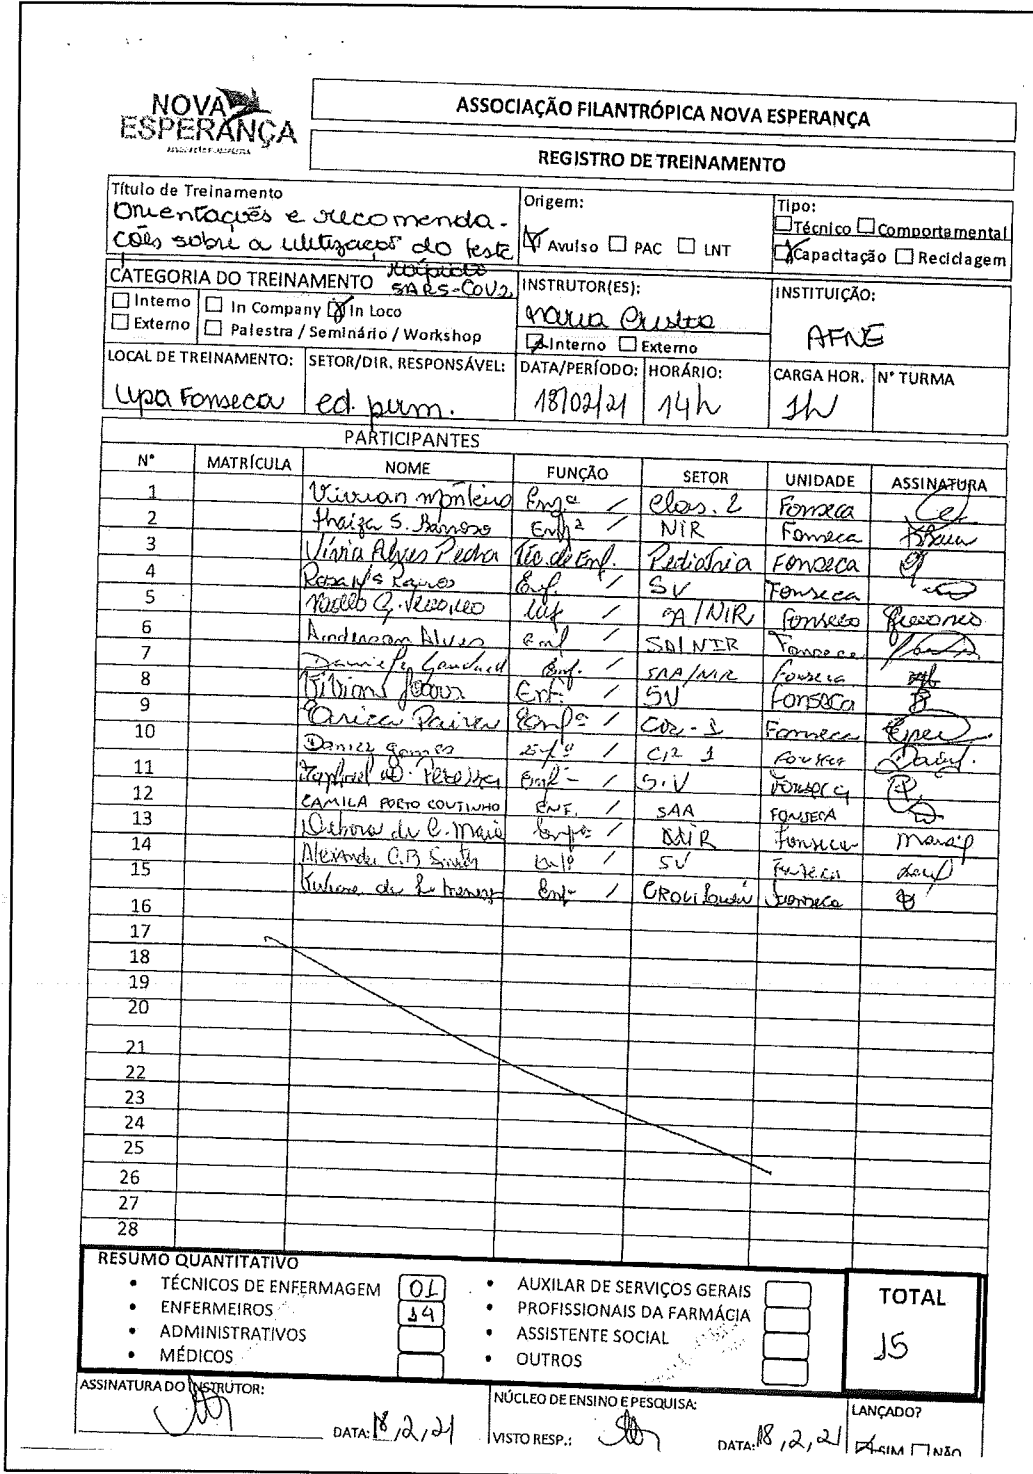 NOVA
ESPERANÇA
ASSOCIAÇÃO FILANTRÓPICA NOVA ESPERANÇA
REGISTRO DE TREINAMENTO
Título de Treinamento
Orientações e recomenda-
ções sobre a utilização do teste
rápido
SARS-COV2
Origem:
Avulso PAC LNT
Tipo:
Técnico Comportamental
Capacitação Reciclagem
CATEGORIA DO TREINAMENTO
Interno In Company In Loco
Externo Palestra / Seminário / Workshop
INSTRUTOR(ES):
Maria
Interno Externo
INSTITUIÇÃO:
AFNE
LOCAL DE TREINAMENTO:
Upa Fonseca
SETOR/DIR. RESPONSÁVEL:
ed. perm.
DATA/PERÍODO:
18/02/21
HORÁRIO:
14h
CARGA HOR.
1h
N° TURMA
PARTICIPANTES
N° MATRÍCULA NOME FUNÇÃO SETOR UNIDADE ASSINATURA
1 Vivian Monteiro Enfª / Clas. 2 Fonseca
2 Thaiza S. Barroso Enfª / NIR Fonseca
3 Vívia Alves Pedra Téc. de Enf. Pediatria Fonseca
4 Enf. / SV Fonseca
5 / SA/NIR Fonseca
6 Anderson Alves Enf / SA/NIR Fonseca
7 Daniele Enf. / SAA/NIR Fonseca
8 Enf. / SV Fonseca
9 Paiva Enfª / Cor - 1 Fonseca
10 Gomes / 1 Fonseca
11 Raphael Enf - / S.V Fonseca
12 CAMILA PORTO COUTINHO ENF. / SAA FONSECA
13 Debora de C. Maia / NIR Fonseca
14 C.B / SV Fonseca
15 de Enfª / Fonseca
16
17
18
19
20
21
22
23
24
25
26
27
28
RESUMO QUANTITATIVO
• TÉCNICOS DE ENFERMAGEM 01
• ENFERMEIROS 14
• ADMINISTRATIVOS
• MÉDICOS
• AUXILAR DE SERVIÇOS GERAIS
• PROFISSIONAIS DA FARMÁCIA
• ASSISTENTE SOCIAL
• OUTROS
TOTAL
15
ASSINATURA DO INSTRUTOR:
DATA: 18, 2, 21
NÚCLEO DE ENSINO E PESQUISA:
VISTO RESP.: DATA: 18, 2, 21
LANÇADO?
SIM NÃO